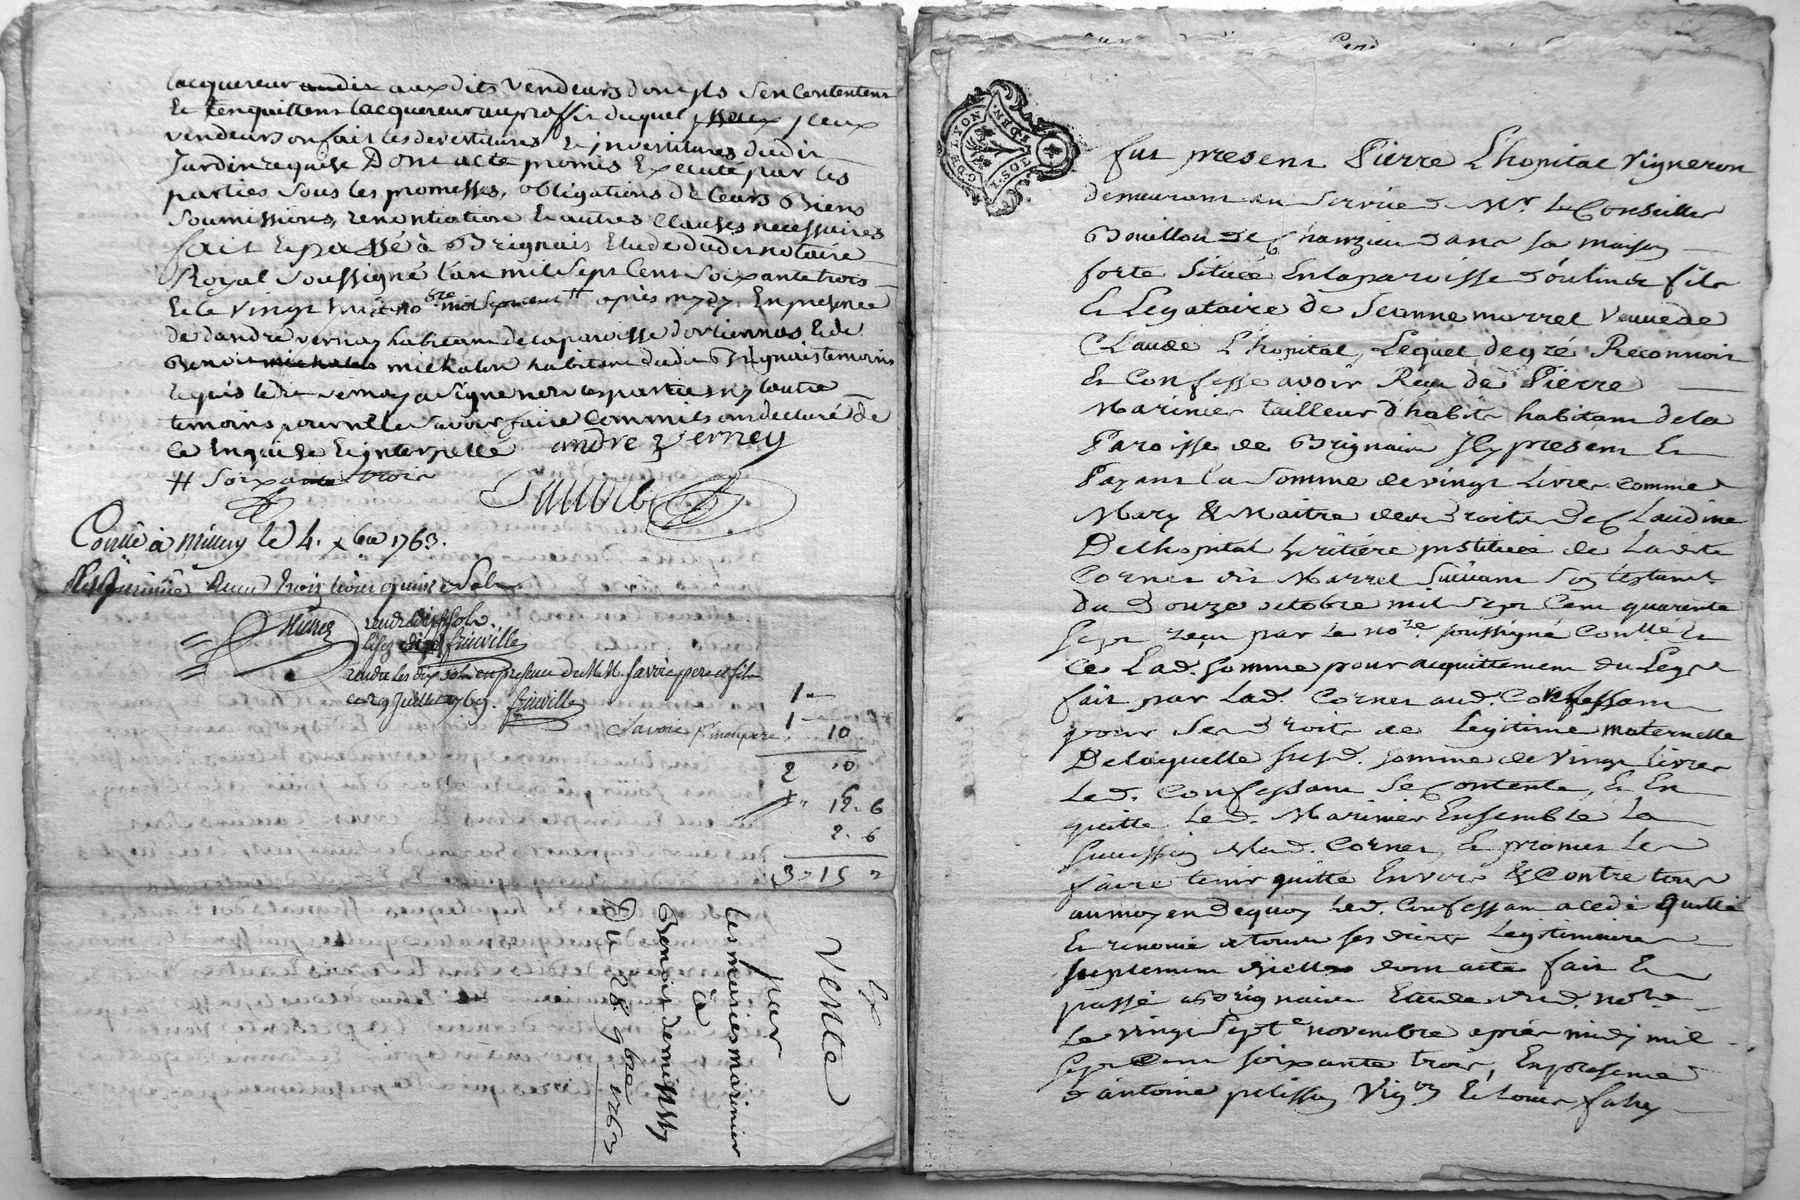 lacquereur audit aux dits vendeurs dont ils sen contentent
Et lenquittent lacquereur au proffit duquel yceux
vendeurs on fait les devestitures & investitures dudit
Jardin requise Dont acte promis Executé par les
parties sous les promesses, obligations de leurs Biens
Soumissions, renontiation & autres Clauses necessaires
fait & passé à Brignais Etude dudit notaire
Royal Soussigné l'an mil sept Cent Soixante trois
Et le vingt huit no.bre # après mydy En presence
de dandré vernay habitant de la paroisse dorliennas & de
Benoit michalon habitant dudit Brignais temoins
requis ledit verney a signé non les parties ny lautre
temoins pour ne le savoir faire Comme ils ont declaré de
Ce Enquis & interpellé andre verney
# Soixante trois
Conllé à Millery le 4. xbre 1763.
Reçu trois livres quinze Sols
rendu dix sols
lisez dix fréuville
rendu les dix sols en presence de M.M. Savoie pere et fils
ce 29 Juillet 1769. fréuville
Savoie pr. mon pere
1
1
10
2 10
12. 6
2. 6
3 " 15 "
Ex
Vente
par
les mariés marinier
à
Benoit demiessy
Du 28. 9bre 1763
G. DE LYON
fut present Pierre L'hopital Vigneron
demeurant au Service de Mr. Le Conseiller
Bouillou de Chanzieu dans sa maison
forte Située En la paroisse d'oulins fils
& Legataire de Jeanne morrel veuve de
Claude L'hopital, Lequel de gré Reconnoit
Et Confesse avoir Reçu de Pierre
Marinier tailleur d'habits habitant de la
Paroisse de Brignais Icy present Et
Payant la Somme de vingt Livres comme
Mary & Maitre des droits de Claudine
Delhopital héritière instituée de Ladite
Corner dit Marrel Suivant Son testamt.
du douze octobre mil sept Cent quarente
Sept reçu par le nore. soussigné Conllé &
Ce Lad. somme pour acquittement du Legs
fait par Lad. Corner aud. Confessant
pour Ses droits de Legitime maternelle
De laquelle susd. somme de vingt Livres
Led. Confessant Se Contente, & En
quitte Led. Marinier Ensemble La
Succession de lad. Corner, Et promet Les
faire tenir quitte Envers & Contre tous
au moyen de quoy Led. Confessant a cedé quitté
Et renoncé a tous ses droits Legitimaires
suplement d'icelles dont acte fait Et
passé a Brignais Etude dud. nore
Le vingt Septe novembre après midy mil
Sept Cent soixante trois, En presence
d'antoine pelisson Vigon Et Louis fahy